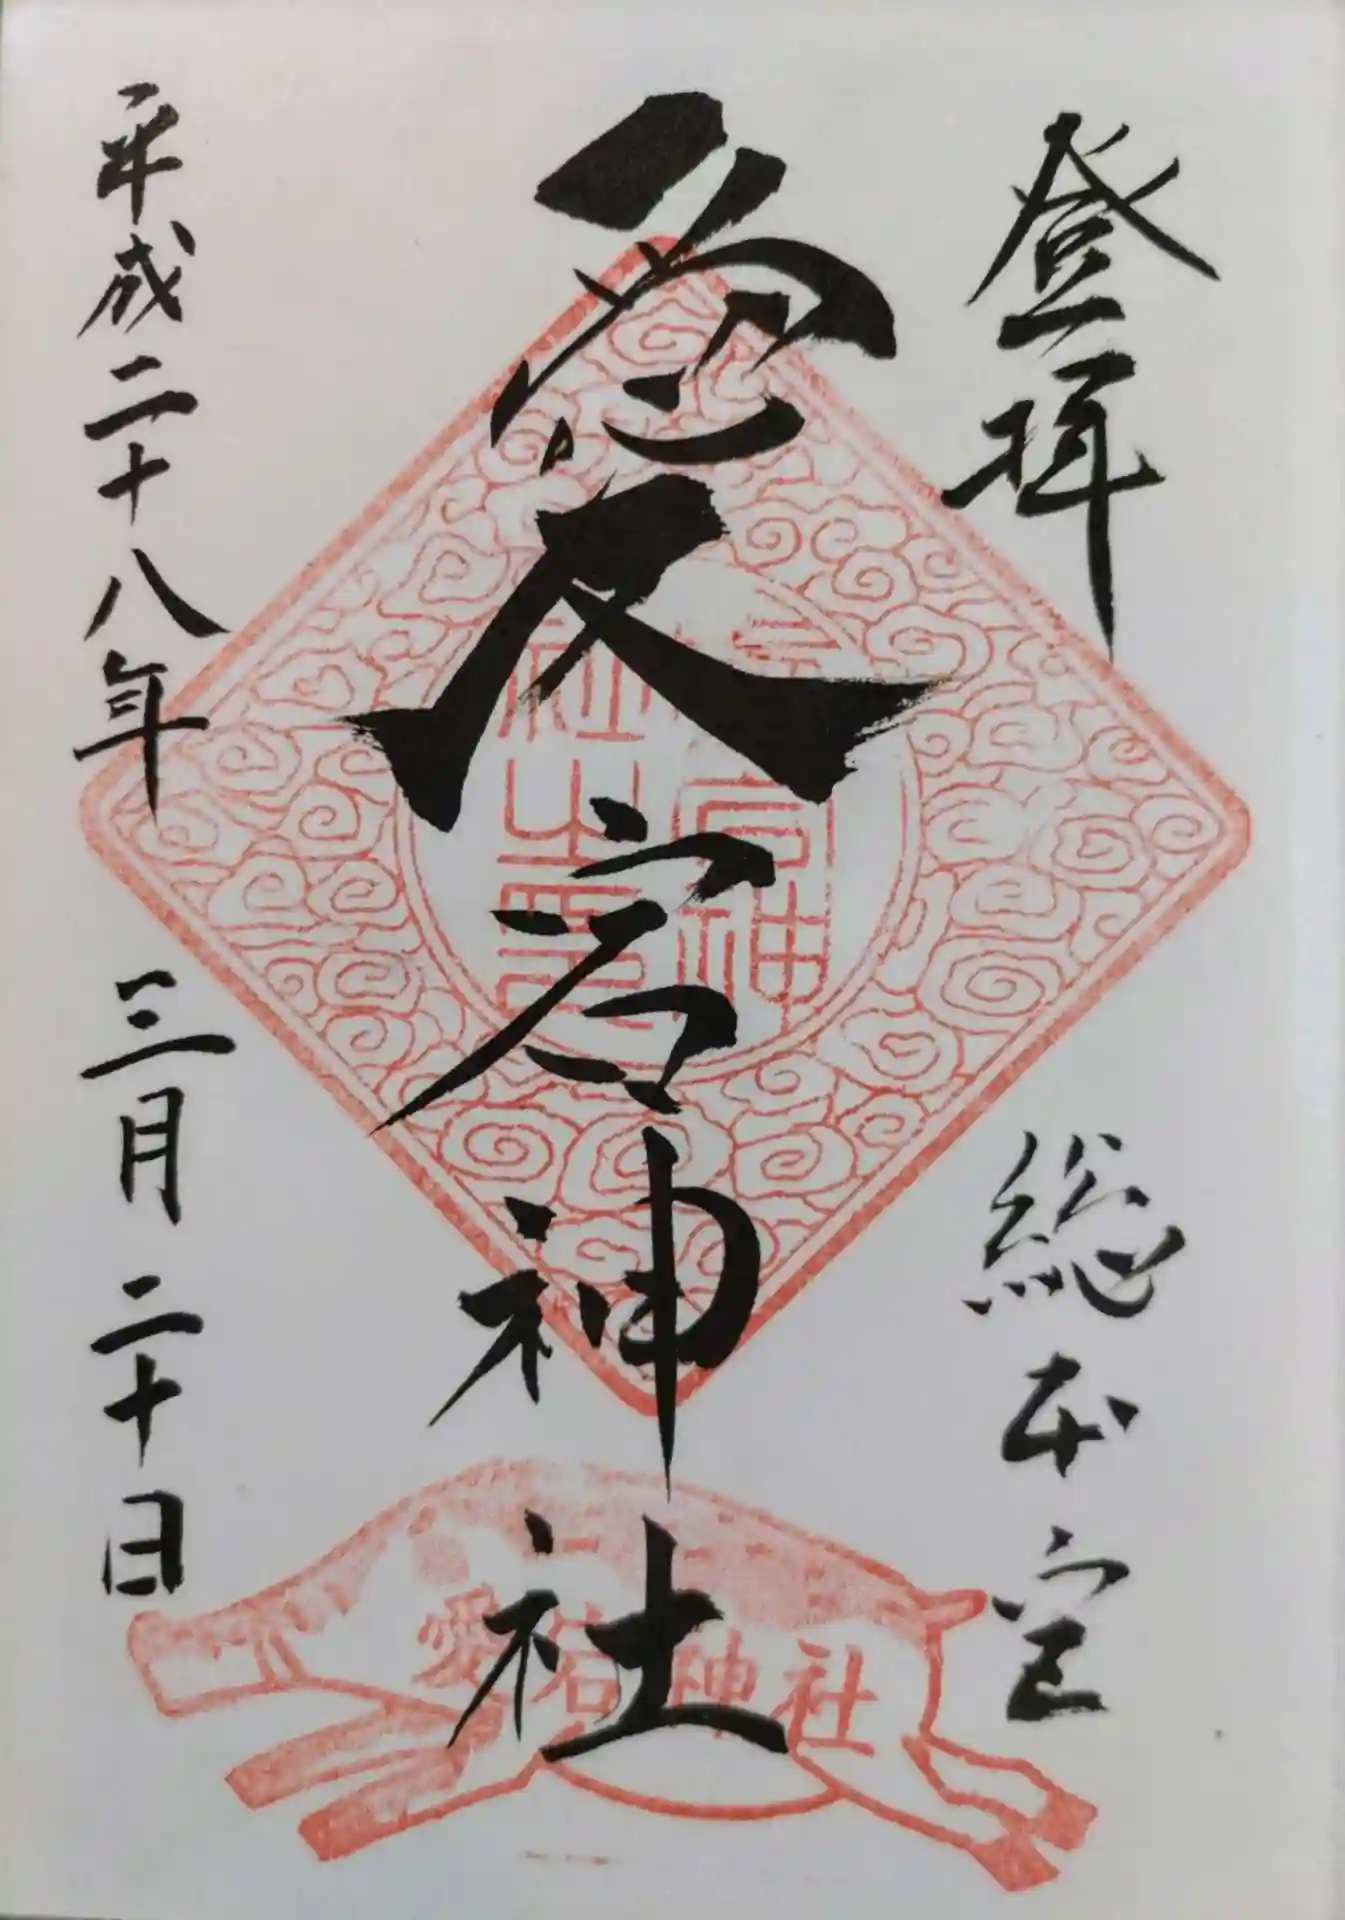 登拝
総本宮
愛宕神社
平成二十八年
三月二十日
愛宕神社